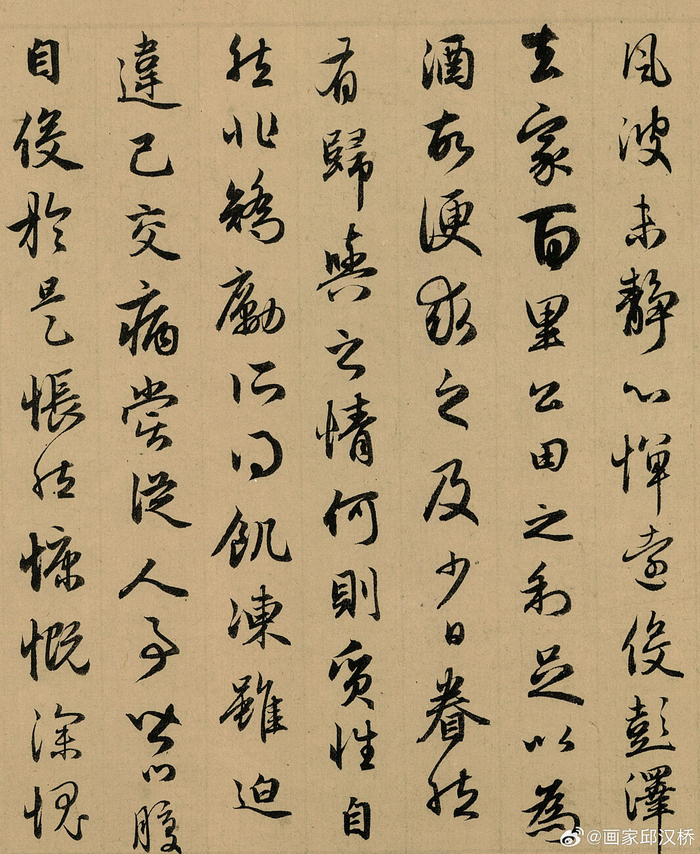 風波未靜心憚遠役彭澤
去家百里公田之利足以為
酒故便求之及少日眷然
有歸與之情何則質性自
然非矯勵所得飢凍雖迫
違己交病嘗從人事皆口腹
自役於是悵然慷慨深愧
@画家邱汉桥